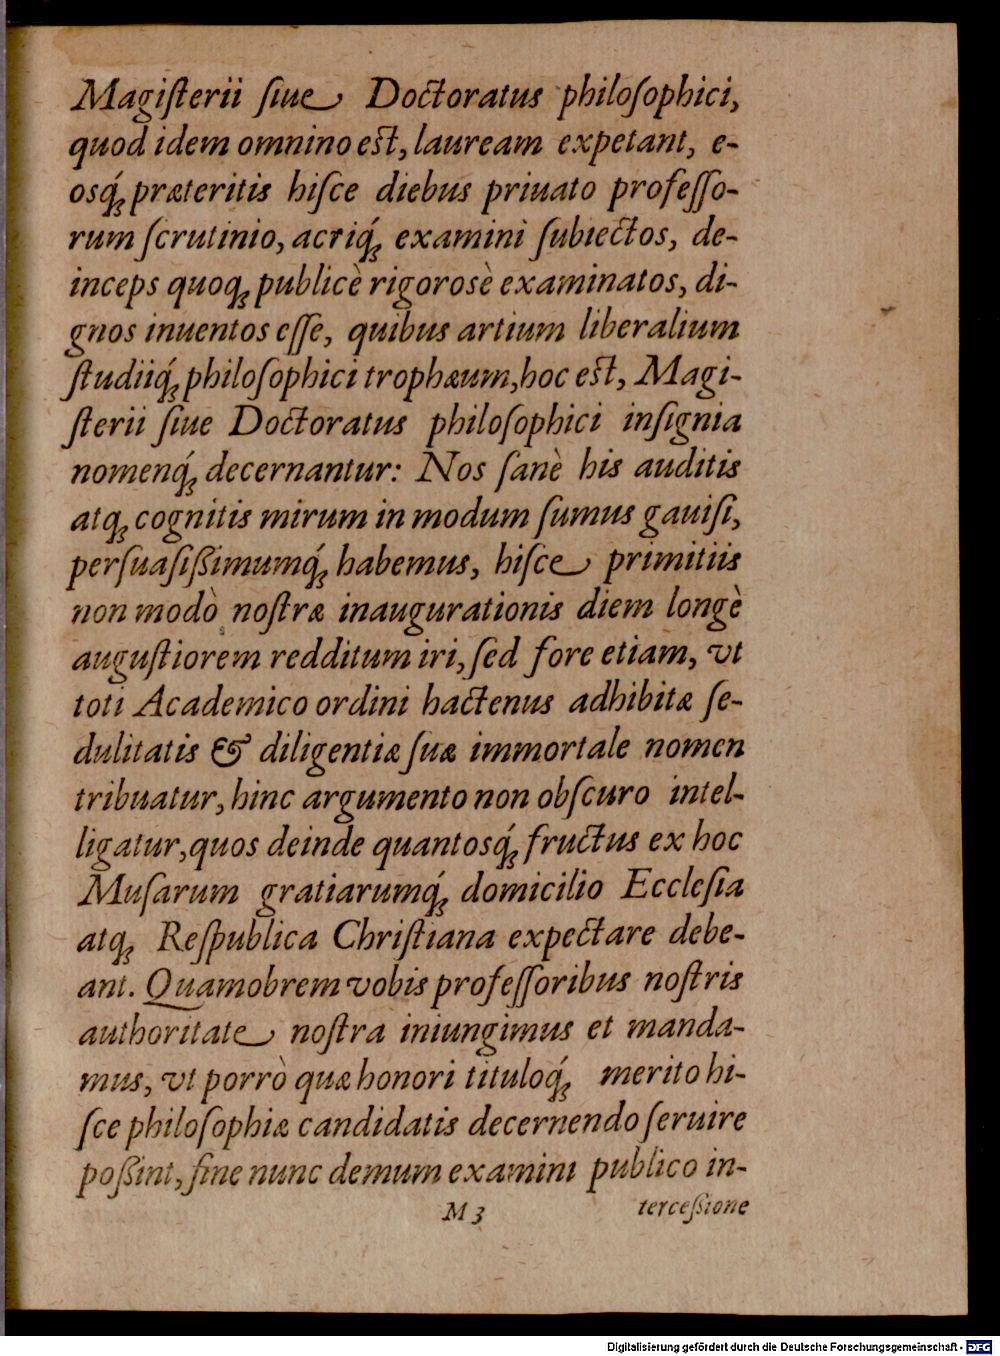 Magiſterii ſiue Doctoratus philoſophici,
quod idem omnino eſt, lauream expetant, e-
osq́ꝫ præteritis hiſce diebus priuato profeſſo-
rum ſcrutinio, acriq́ꝫ examini ſubiectos, de-
inceps quoqꝫ publicè rigorosè examinatos, di-
gnos inuentos eſſe, quibus artium liberalium
ſtudiiq́ꝫ philoſophici trophæum, hoc eſt, Magi-
ſterii ſiue Doctoratus philoſophici inſignia
nomenq́ꝫ decernantur: Nos ſanè his auditis
atqꝫ cognitis mirum in modum ſumus gauiſi,
perſuaſiſſimumq́ꝫ habemus, hiſce primitiis
non modò noſtræ inaugurationis diem longè
auguſtiorem redditum iri, ſed fore etiam, vt
toti Academico ordini hactenus adhibitæ ſe-
dulitatis & diligentiæ ſuæ immortale nomen
tribuatur, hinc argumento non obſcuro intel-
ligatur, quos deinde quantosq́ꝫ fructus ex hoc
Muſarum gratiarumq́ꝫ domicilio Eccleſia
atqꝫ Reſpublica Chriſtiana expectare debe-
ant. Quamobrem vobis profeſſoribus noſtris
authoritate noſtra iniungimus et manda-
mus, vt porrò quæ honori tituloq́ꝫ merito hi-
ſce philoſophiæ candidatis decernendo ſeruire
poßint, ſine nunc demum examini publico in-
M 3 terceßione
Digitalisierung gefördert durch die Deutsche Forschungsgemeinschaft - DFG